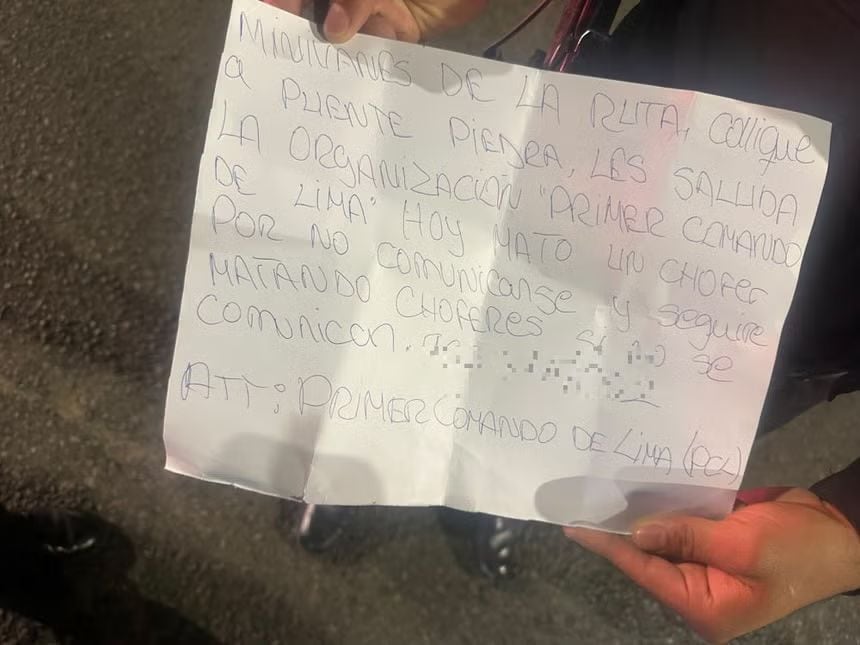 MINIVANES DE LA RUTA, Calligue
a PUENTE PIEDRA, LES SALUDA
LA ORGANIZACION "PRIMER COMANDO
DE LIMA" HOY MATO UN CHOFER
POR NO COMUNICANSE y seguire
MATANDO CHOFERES SI NO se
comunican.
ATT: PRIMER COMANDO DE LIMA (PCL)